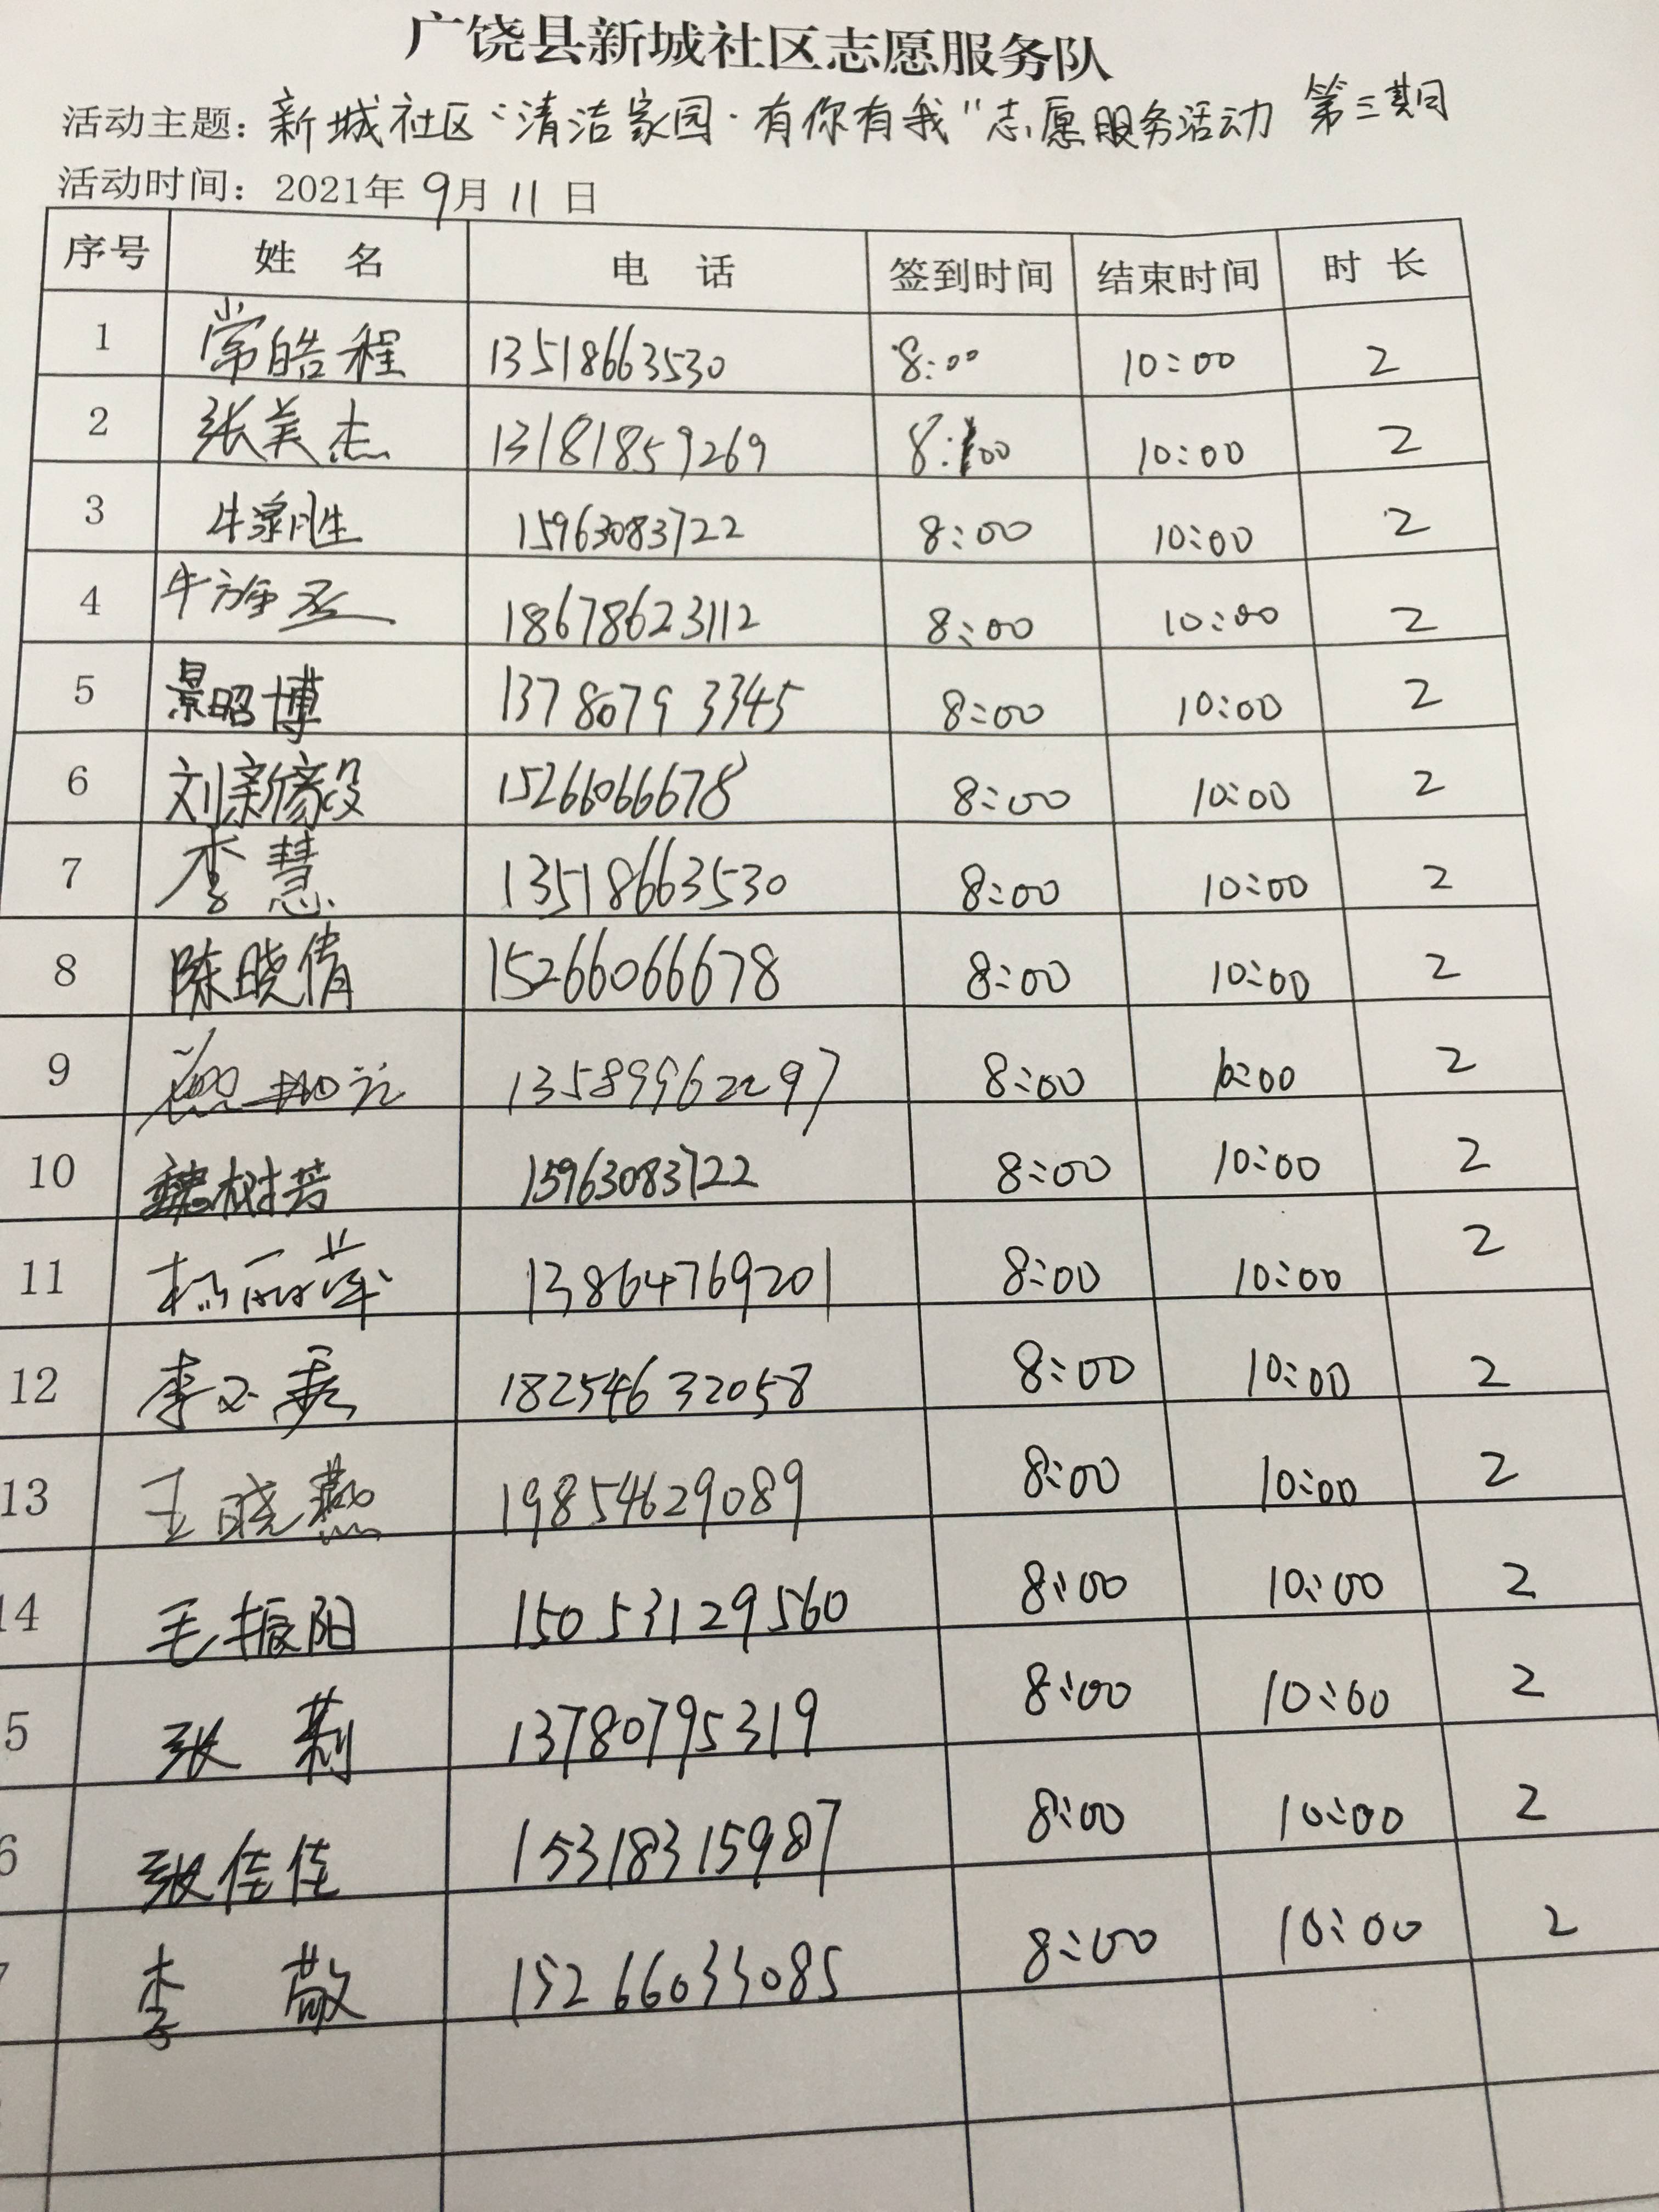 广饶县新城社区志愿服务队
活动主题：新城社区“清洁家园·有你有我”志愿服务活动 第三期
活动时间：2021年9月11日
序号 姓名 电话 签到时间 结束时间 时长
1 常皓程 13518663530 8:00 10:00 2
2 张美杰 13181859269 8:00 10:00 2
3 15963083722 8:00 10:00 2
4 18678623112 8:00 10:00 2
5 景昭博 13780793345 8:00 10:00 2
6 15266066678 8:00 10:00 2
7 李慧 13518663530 8:00 10:00 2
8 陈晓倩 15266066678 8:00 10:00 2
9 13589962297 8:00 10:00 2
10 魏树芳 15963083722 8:00 10:00 2
11 13864769201 8:00 10:00 2
12 18254632058 8:00 10:00 2
13 王晓燕 19854629089 8:00 10:00 2
14 毛振阳 15053129560 8:00 10:00 2
5 张莉 13780795319 8:00 10:00 2
6 张佳佳 15318315987 8:00 10:00 2
7 李敬 15266033085 8:00 10:00 2